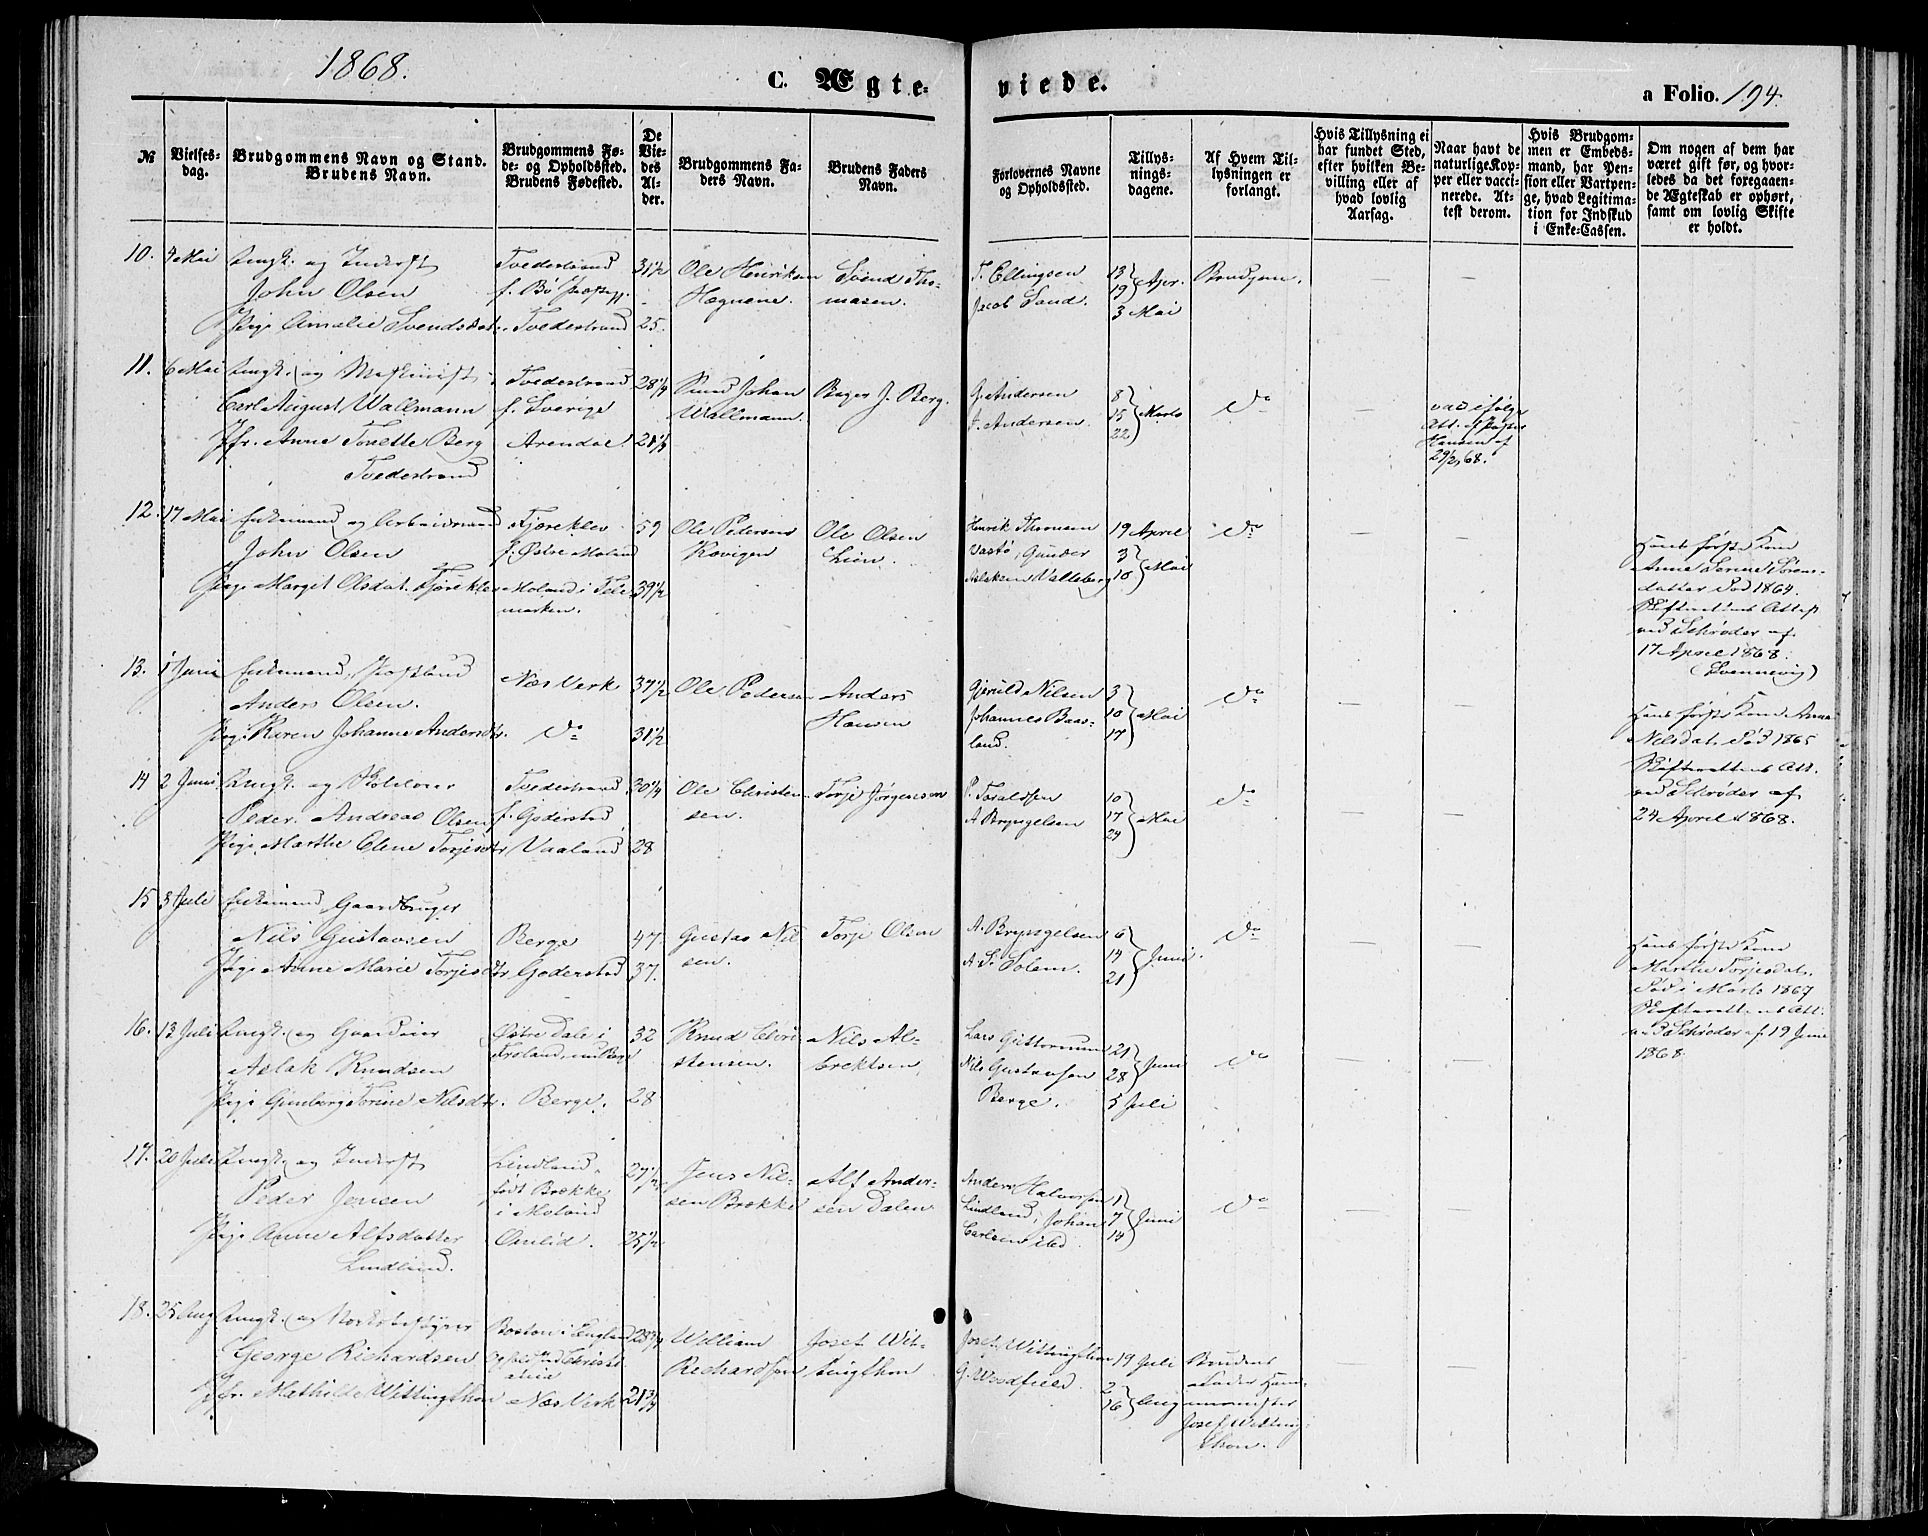 1868.
C. Ægte-
viede.
a Folio. 194.
№
Vielses-
dag.
Brudgommens Navn og Stand.
Brudens Navn.
Brudgommens Fø-
de- og Opholdssted.
Brudens Fødested.
De
Vie-
des
Al-
der.
Brudgommens Fa-
ders Navn.
Brudens Faders
Navn.
Forlovernes Navne
og Opholdssted.
Tillys-
nings-
dagene.
Af Hvem Til-
lysningen er
forlangt.
Hvis Tillysning ei
har fundet Sted,
efter hvilken Be-
villing eller af
hvad lovlig
Aarsag.
Naar havt de
naturlige Kop-
per eller vacci-
nerede. At-
test derom.
Hvis Brudgom-
men er Embeds-
mand, har Pen-
sion eller Vartpen-
ge, hvad Legitima-
tion for Indskud
i Enke-Cassen.
Om nogen af dem har
været gift før, og hvor-
ledes da det foregaaen-
de Ægteskab er ophørt,
samt om lovlig Skifte
er holdt.
10. 4 Mai Ungk. og Inderst
John Olsen
Pige Amalie Svendsdat.
Tvedestrand
f. Bø
Tvedestrand
31½
25
Ole Henriksen
Hegnene.
Svend Tho-
masen.
T. Ellingsen
Jacob Sand.
13
19 } Apr.
3 Mai
Brudgom.
11. 6 Mai Ungk. og Maskinist
Carl August Wallmann
Jfr. Anne Tonette Berg
Tvedestrand
Tvedestrand
f. Sverige
Arendal
28¼
Johan
Wallmann.
Bager J. Berg.
G. Andersen
J. Andersen
8
15 } Marts
22
Do
vac. ifølge
Att. af
Hansen af
29/2 68.
12. 17 Mai Enkemand og Arbeidsmand
John Olsen
Pige Margit Olsdat. Fjæreklev
Fjæreklev
f. Østre Moland
Moland i Tele-
marken.
59
39½
Ole Pedersen
Kovigen
Ole Olsen
Lien.
Henrik Thomsen
Vastø, Gunder
Aslaksen Valleberg
19 April
3
10 } Mai
Do
Hans første Kone
Anne Serine Søren-
datter død 1864.
Skifterettens Attest
ved Schrøder af
17 April 1868.
(Svennevig)
13. 1 Juni Enkemand,
Anders Olsen.
Pige Karen Johanne Andersdtr.
Næs Verk
Do
37½
31½
Ole Pedersen
Anders
Hansen
Gjeruld Nilsen
Johannes Baas-
land.
3
10 } Mai
17
Do
Hans første Kone Anne
Nilsdat. død 1865
Skifterettens Att.
ved Schrøder af
24 April 1868.
14 2 Juni Ungk. og Skolelærer
Peder Andreas Olsen
Pige Marthe Elene Torjesdtr
Tvedestrand
f. Goderstad
Vaaland
30¼
28
Ole Christen-
sen.
Torje Jørgensen
P. Toraldsen
A Bryngelsen
10
17 } Mai
24
Do
15 Juli Enkemand Gaardbruger
Nils Gustavsen
Pige Anne Marie Torjesdtr
Berge
Goderstad
47.
37.
Gustav Nil-
sen.
Torje Olsen
A. Bryngelsen
A. S. Solem.
6
14 } Juni
21
Do
Hans første Kone
Marthe Torjesdat.
død i Marts 1867
Skifterettens Att.
ved Schrøder af 19 Juni
1868.
16. 13 Juli Ungk. og Gaardeier
Aslak Knudsen
Pige Gunborg Torine Nilsdtr.
Østre Dale i
Froland, nu Berge
Berge.
32
28
Knud Chri-
stensen.
Nils Al-
brektsen,
Lars Guttormsen
Nils Gustavsen
Berge.
21
28 } Juni
5 Juli
Do
17. 20 Juli Ungk. og Inderst
Peder Jensen
Pige Anne Alfsdatter
Lindland.
Lindland,
født Brække
i Moland
Omlid.
27½
25½
Jens Nil-
sen Brække
Alf Ander-
sen Dalen
Anders Halvorsen
Lindland, Johan
Carlsen ibd.
1
7 } Juni
14
Do
18. 25 Aug Ungk. og
George Richardsen
Jfr. Mathilde Wittingthon
Boston i England
Christi-
ania
Næs Verk
28¾
21¾
William
Richardson
Josef Wit-
tingthon
Josef Wittingthon
G. Woodfield
19 Juli
2
16 } Aug
Brudens
Fader Ham-
mersmester
Josef Witting-
thon.